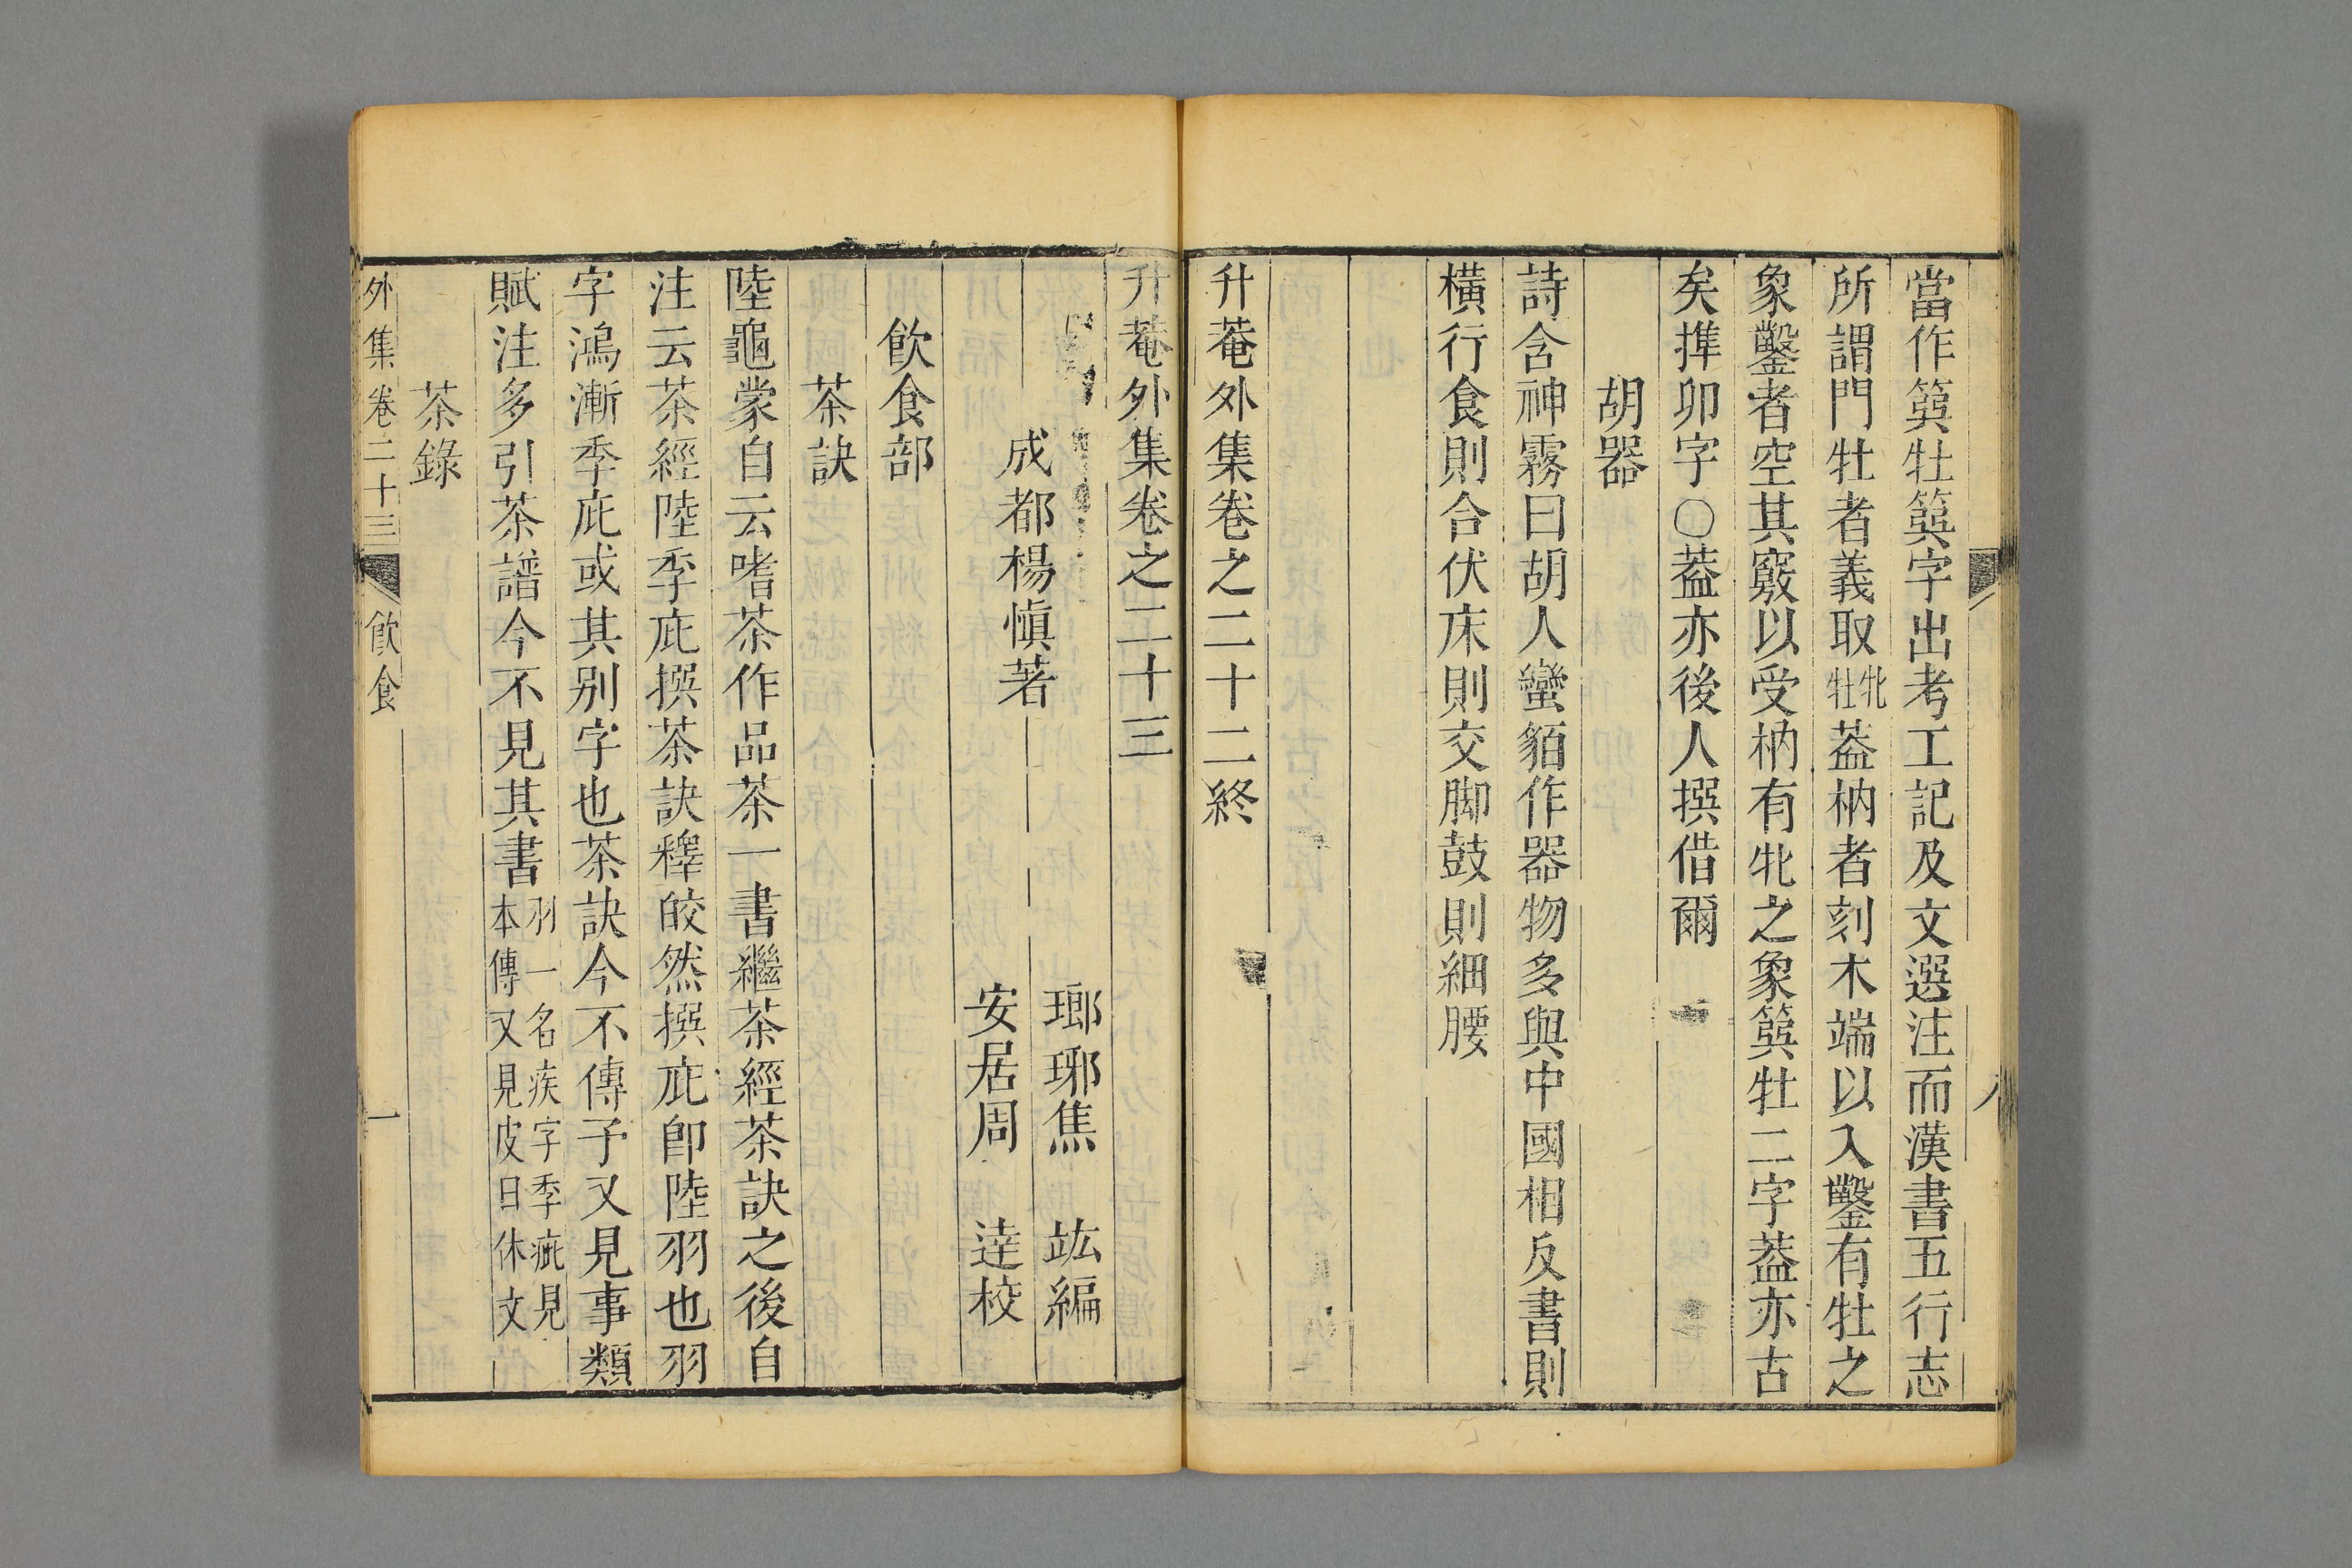 當作簨牡簨字出考工記及文選注而漢書五行志
所謂門牡者義取牝牡葢枘者刻木端以入鑿有牡之
象鑿者空其竅以受枘有牝之象簨牡二字葢亦古
矣榫卯字○葢亦後人撰借爾
胡器
詩含神霧曰胡人蠻貊作器物多與中國相反書則
橫行食則合伏床則交脚鼓則細腰
升菴外集卷之二十二終
升菴外集卷之二十三
瑯琊焦 竑編
成都楊慎著
安居周 逹校
飲食部
茶訣
陸龜蒙自云嗜茶作品茶一書繼茶經茶訣之後自
注云茶經陸季疵撰茶訣釋皎然撰疵卽陸羽也羽
字鴻漸季疵或其别字也茶訣今不傳予又見事類
賦注多引茶譜今不見其書羽一名疾字季疵見本傳又見皮日休文
茶錄
外集卷二十三 飲食 一